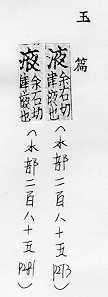 玉篇
液 余石切津液也(水部二百八十五 P273)
余石切津液也(水部二百八十五 P281)